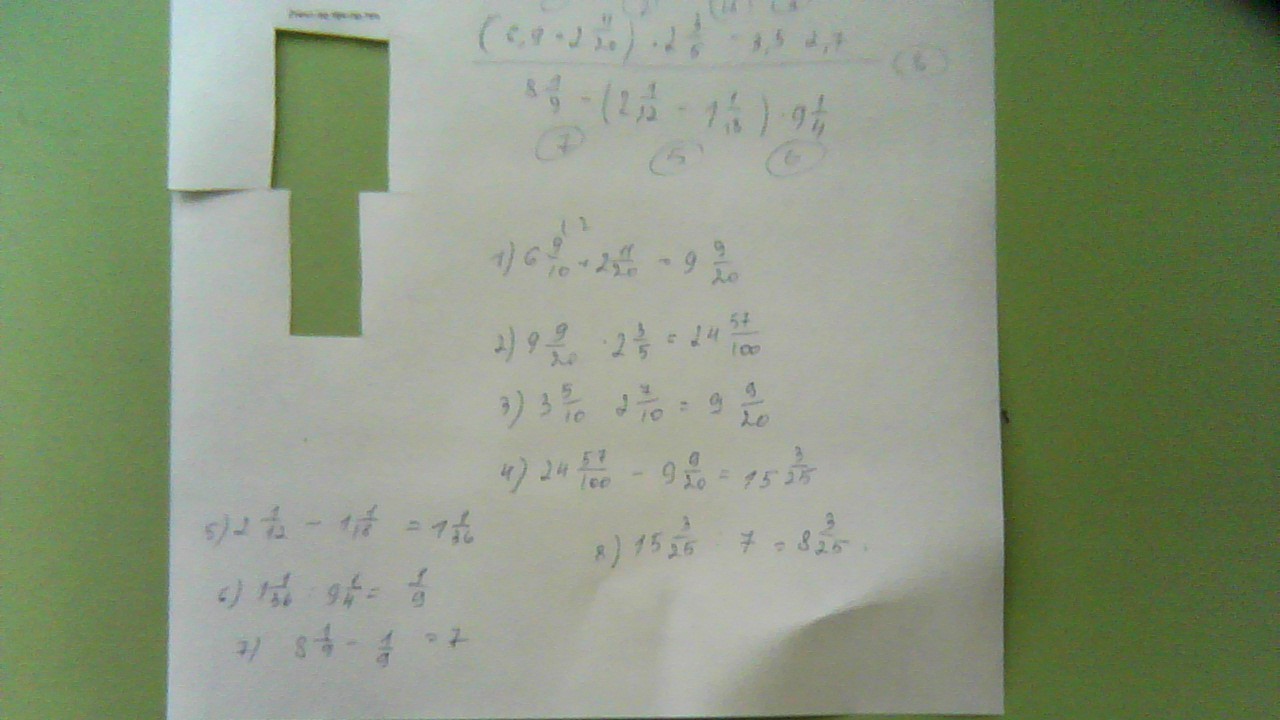 (6,9 + 2 11/20) · 2 3/5 - 3,5 2,7
8 1/9 - (2 1/12 - 1 1/18) · 9 1/4
7 5 6
1) 6 9/10 + 2 11/20 = 9 9/20
2) 9 9/20 · 2 3/5 = 24 57/100
3) 3 5/10 2 7/10 = 9 9/20
4) 24 57/100 - 9 9/20 = 15 3/25
5) 2 1/12 - 1 1/18 = 1 1/36
6) 1 1/36 · 9 1/4 = 1/9
7) 8 1/9 - 1/9 = 7
8) 15 3/25 7 = 8 3/25.